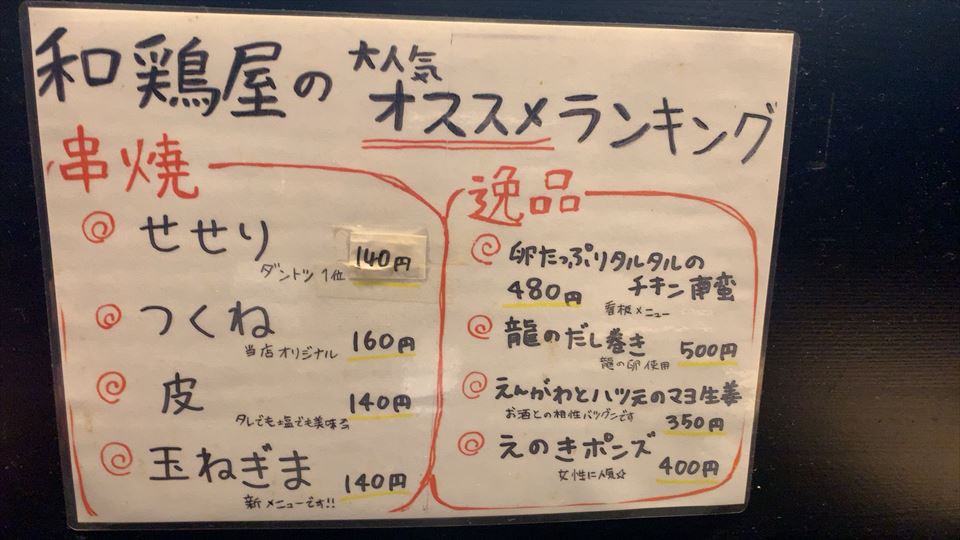 和鶏屋の 大人気
オススメランキング
串焼
せせり
ダントツ1位 140円
つくね
当店オリジナル 160円
皮
タレでも塩でも美味る 140円
玉ねぎま
新メニューです!! 140円
逸品
卵たっぷりタルタルの
チキン南蛮
480円
看板メニュー
龍のだし巻き
龍の卵使用 500円
えんがわとハツ元のマヨ生姜
お酒との相性バツグンです 350円
えのきポンズ
女性に人気☆ 400円